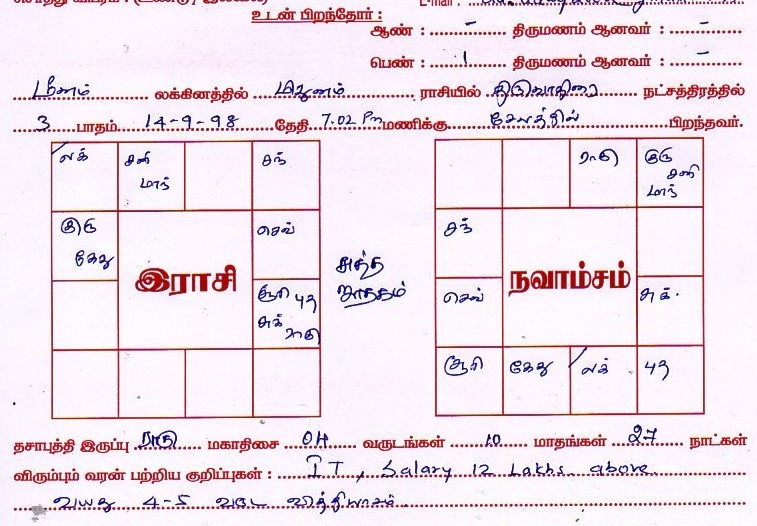 உடன் பிறந்தோர் :
ஆண் : – திருமணம் ஆனவர் : –
பெண் : 1 திருமணம் ஆனவர் : –
மீனம் லக்கினத்தில் மிதுனம் ராசியில் திருவாதிரை நட்சத்திரத்தில்
3 பாதம் 14-9-98 தேதி 7.02 Pm மணிக்கு சேலத்தில் பிறந்தவர்.
லக் சனி மாந் சந்
குரு கேது செவ்
இராசி
சூரி புத சுக் ராகு
சுத்த ஜாதகம்
ராகு குரு சனி மாந்
சந்
நவாம்சம்
செவ் சுக்.
சூரி கேது லக் புத
தசாபுத்தி இருப்பு ராகு மகாதிசை 04 வருடங்கள் 10 மாதங்கள் 27 நாட்கள்
விரும்பும் வரன் பற்றிய குறிப்புகள் : IT, Salary 12 Lakhs above
வயது 4-5 வருட வித்தியாசம்.